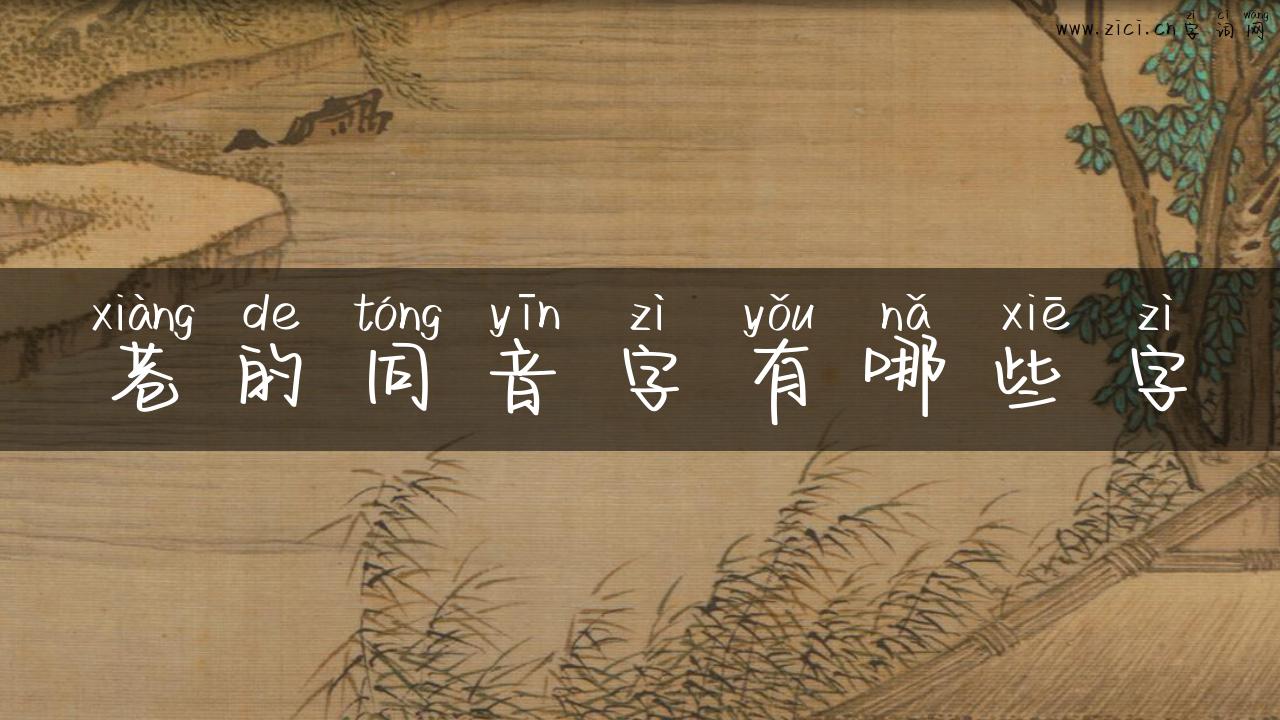 zì cí wǎng
www.zici.cn字词网
xiàng de tóng yīn zì yǒu nǎ xiē zì
巷的同音字有哪些字